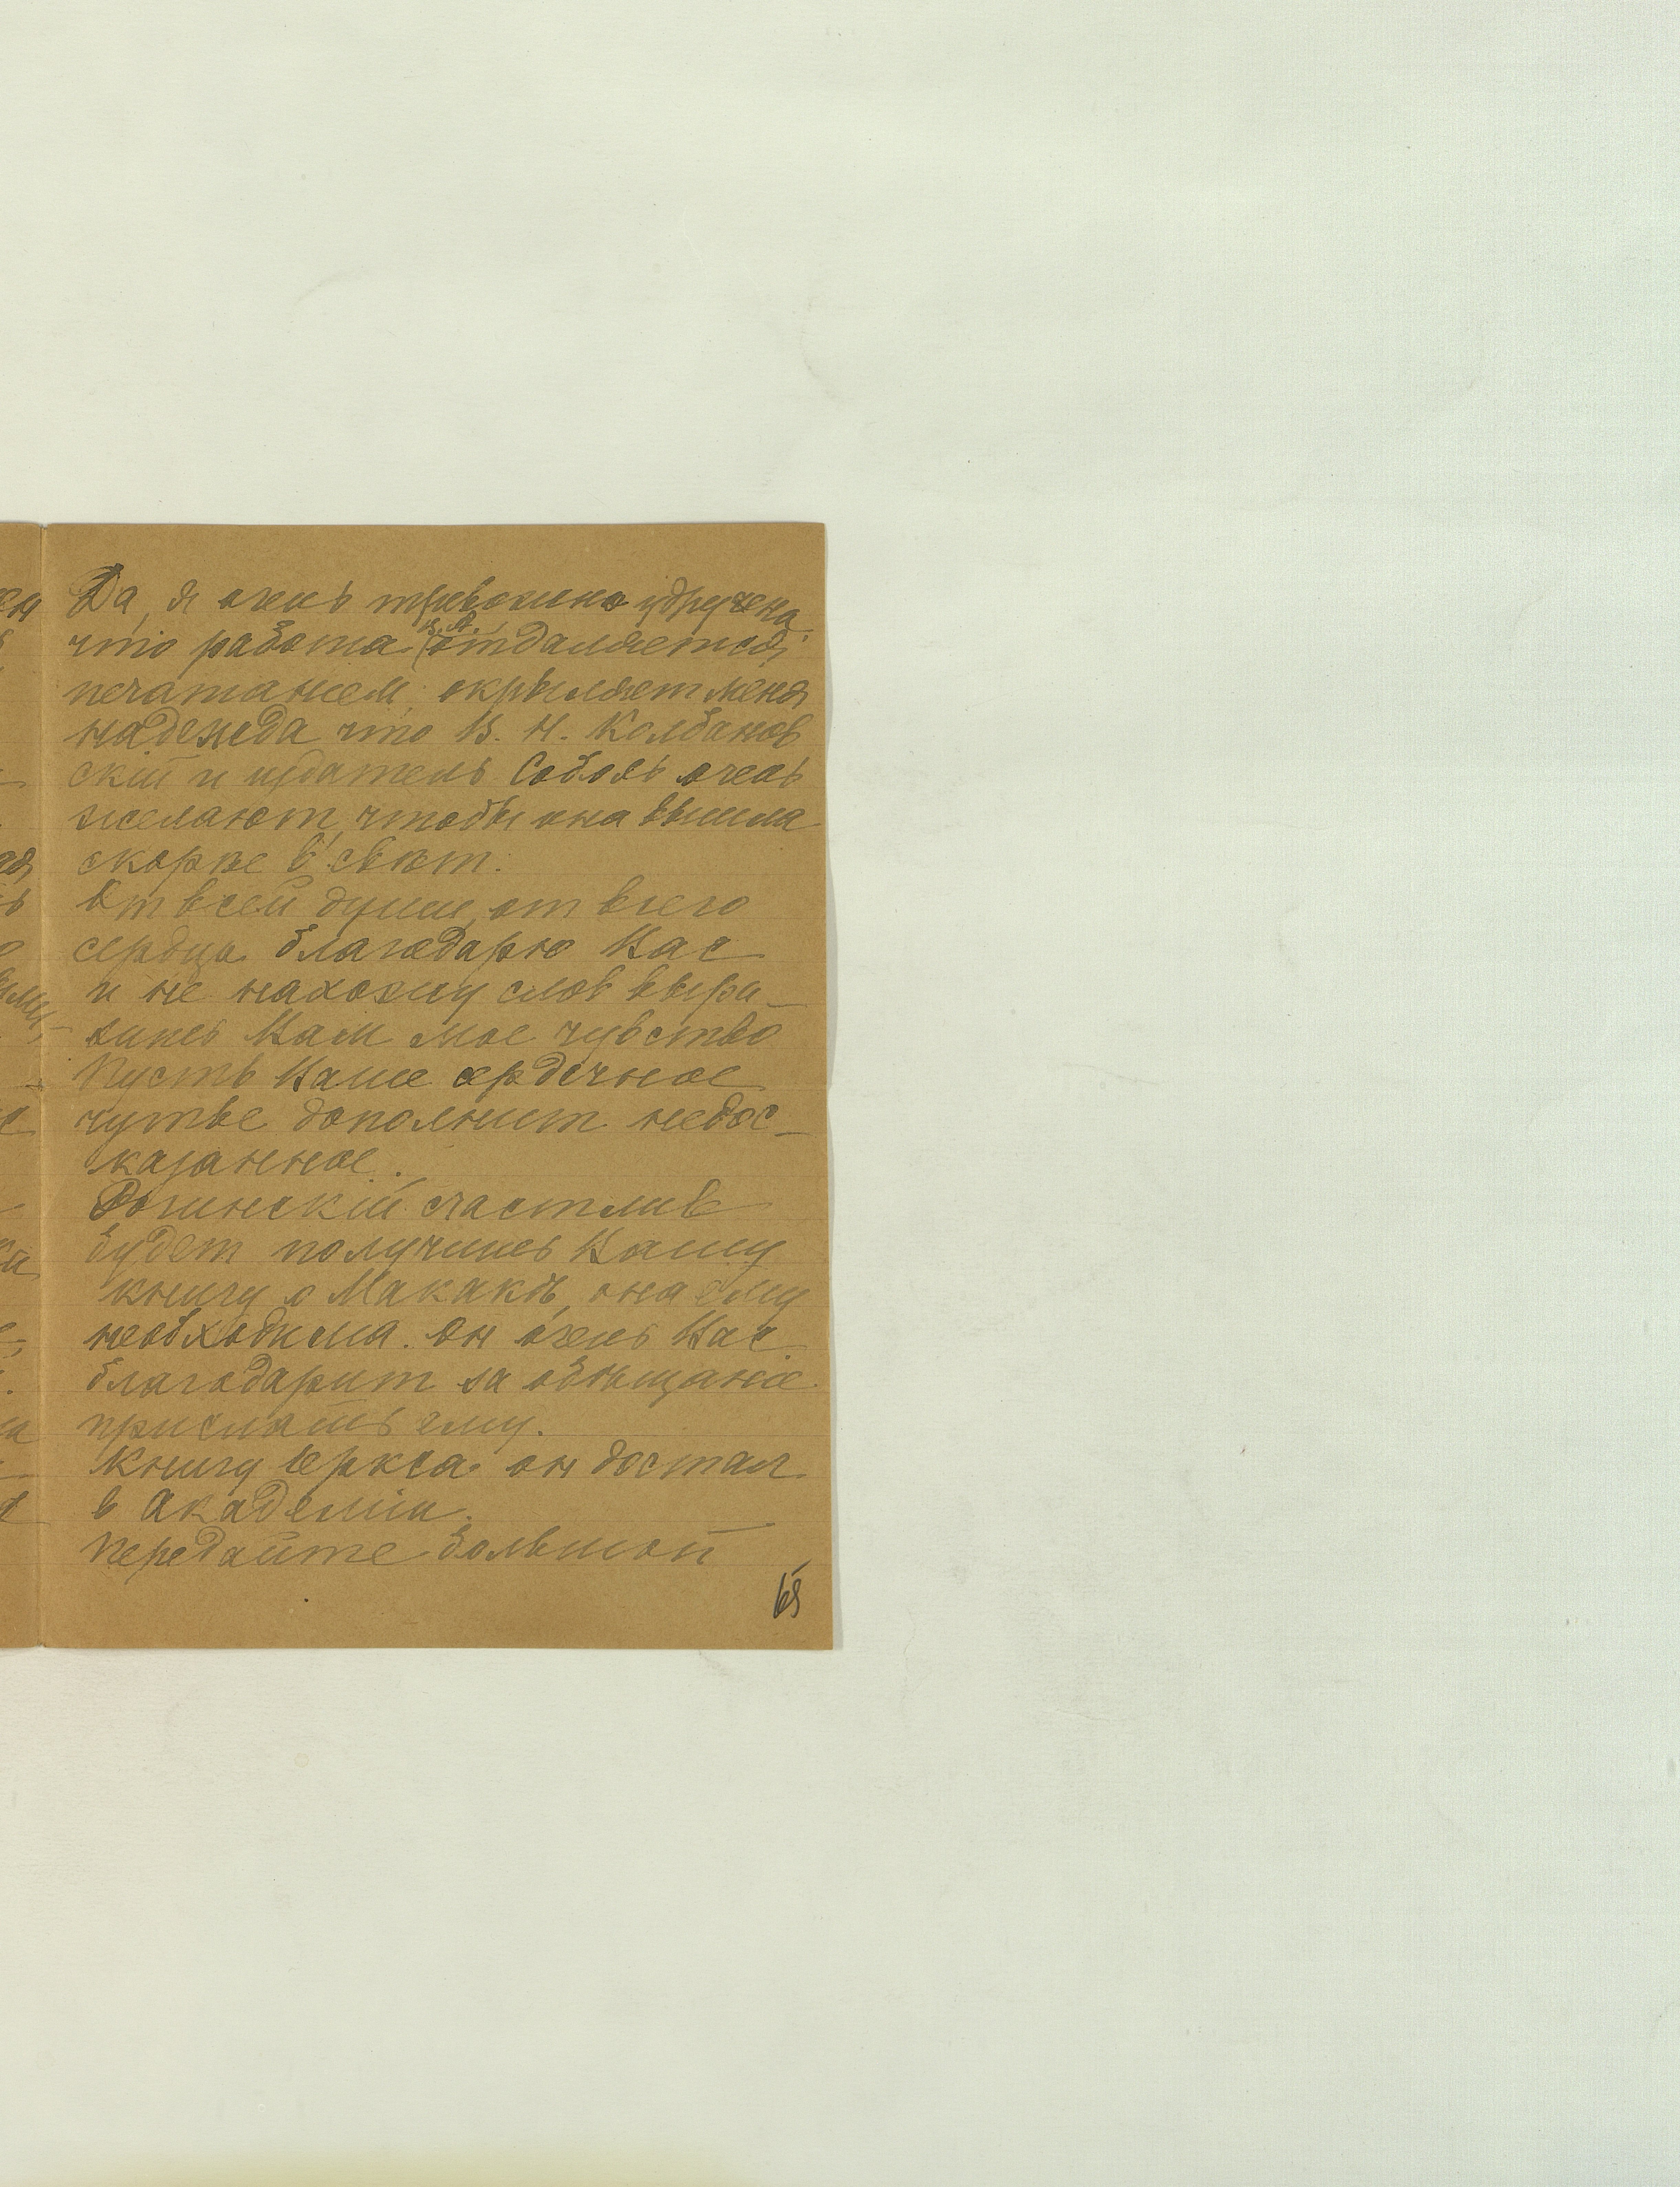 Да, я очень тревожно удручена
что работа В. А. отдаляется
печатанием, окрыляет меня
надежда что В. Н. Колбанов
скій и издатель Соболь очень
желают, чтобы она вышла
скорѣе в свѣт.
От всей души, от всего
сердца благодарю Вас
и не нахожу слов выра-
зить Вам мое чувство
Пусть Ваше сердечное
чутье дополнит недос-
казанное.
Рогинскій счастлив
будет получить Вашу
книгу о Макакѣ, она ему
необходима. Он очень Вас
благодарит за обѣщание
прислать ему.
Книгу Іеркса он достал
в Академіи.
Передайте большой
65